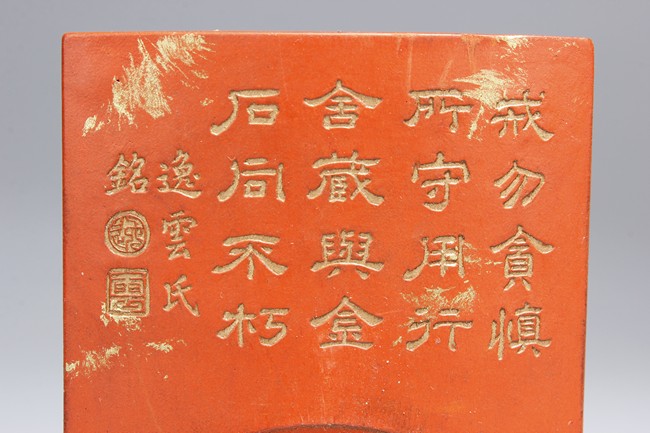 戒勿貪慎
所守用行
舍蔵與金
石同不朽
逸雲氏
銘